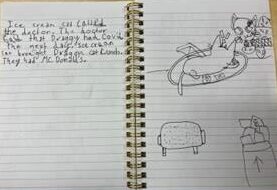 Ice cream cat called
the doctor. The doctor
said that Draggy had Covid.
The next day, ice cream
cat brought Dragon
They had McDonald's.